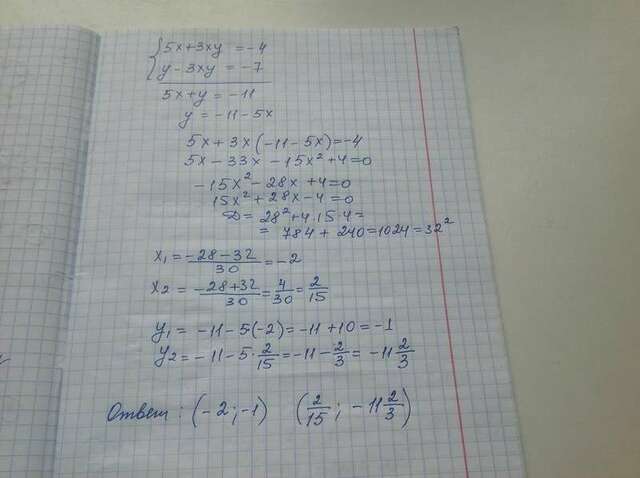 {5x+3xy = -4
y-3xy = -7
5x+y = -11
y = -11-5x
5x+3x(-11-5x)=-4
5x-33x-15x²+4=0
-15x²-28x+4=0
15x²+28x-4=0
D = 28²+4·15·4=
= 784+240=1024=32²
x₁ = (-28-32)/30 = -2
x₂ = (-28+32)/30 = 4/30 = 2/15
y₁ = -11-5(-2)=-11+10=-1
y₂ = -11-5·2/15=-11-2/3=-11 2/3
Ответ: (-2;-1) (2/15; -11 2/3)